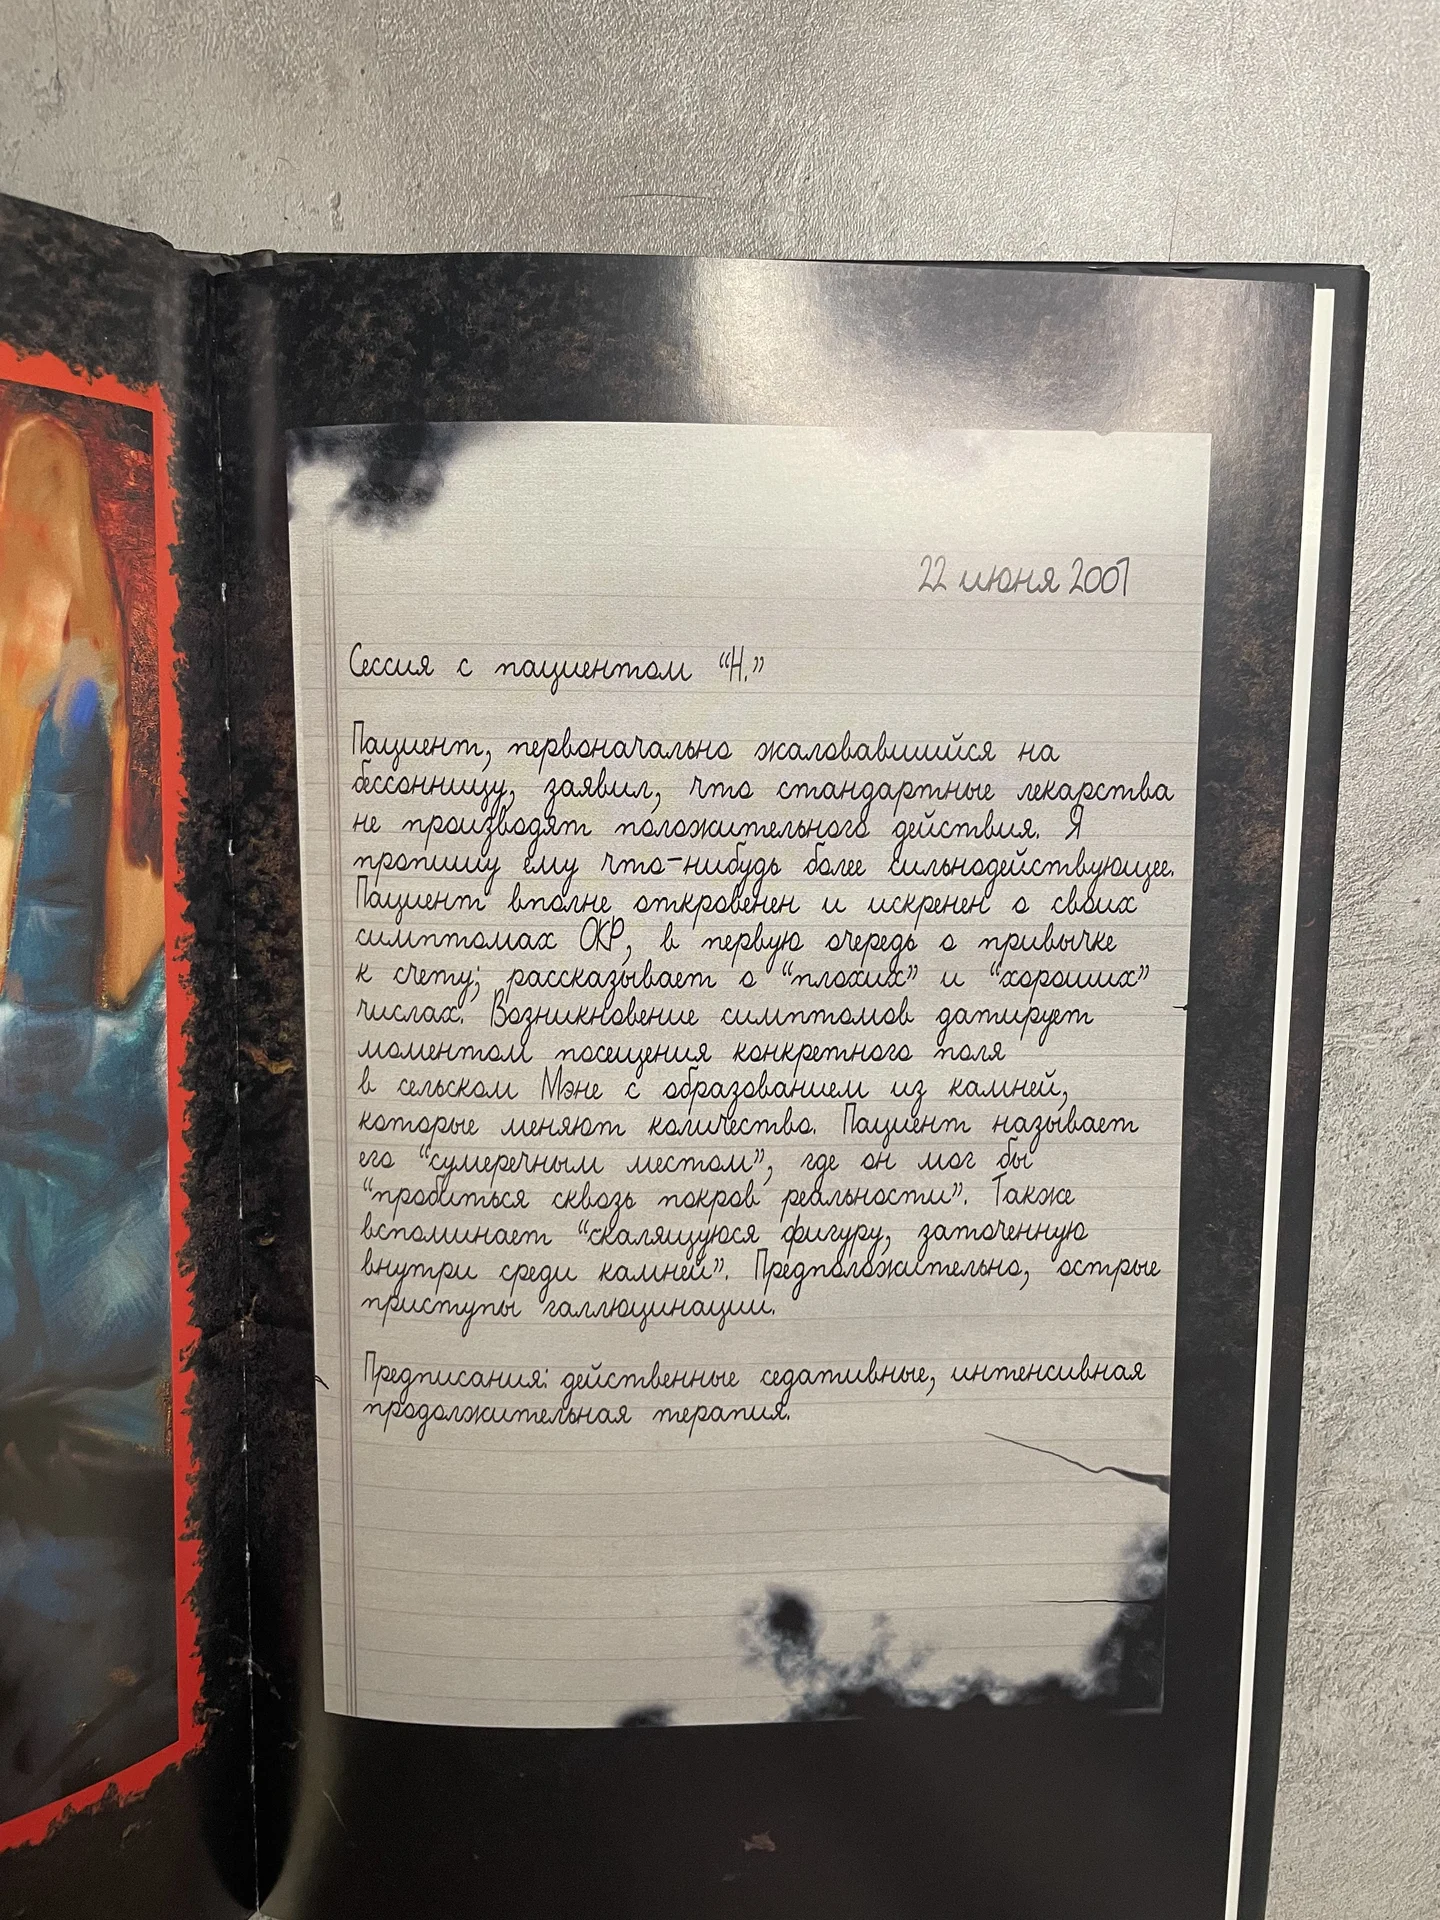 22 июня 2007
Сессия с пациентом “Н.”
Пациент, первоначально жаловавшийся на
бессонницу, заявил, что стандартные лекарства
не производят положительного действия. Я
пропишу ему что-нибудь более сильнодействующее.
Пациент вполне откровенен и искренен о своих
симптомах ОКР, в первую очередь о привычке
к счету; рассказывает о “плохих” и “хороших”
числах. Возникновение симптомов датирует
моментом посещения конкретного поля
в сельском Мэне с образованием из камней,
которые меняют количество. Пациент называет
его “сумеречным местом”, где он мог бы
“пробиться сквозь покров реальности”. Также
вспоминает “скалящуюся фигуру, заточенную
внутри среди камней”. Предположительно, острые
приступы галлюцинации.
Предписания: действенные седативные, интенсивная
продолжительная терапия.